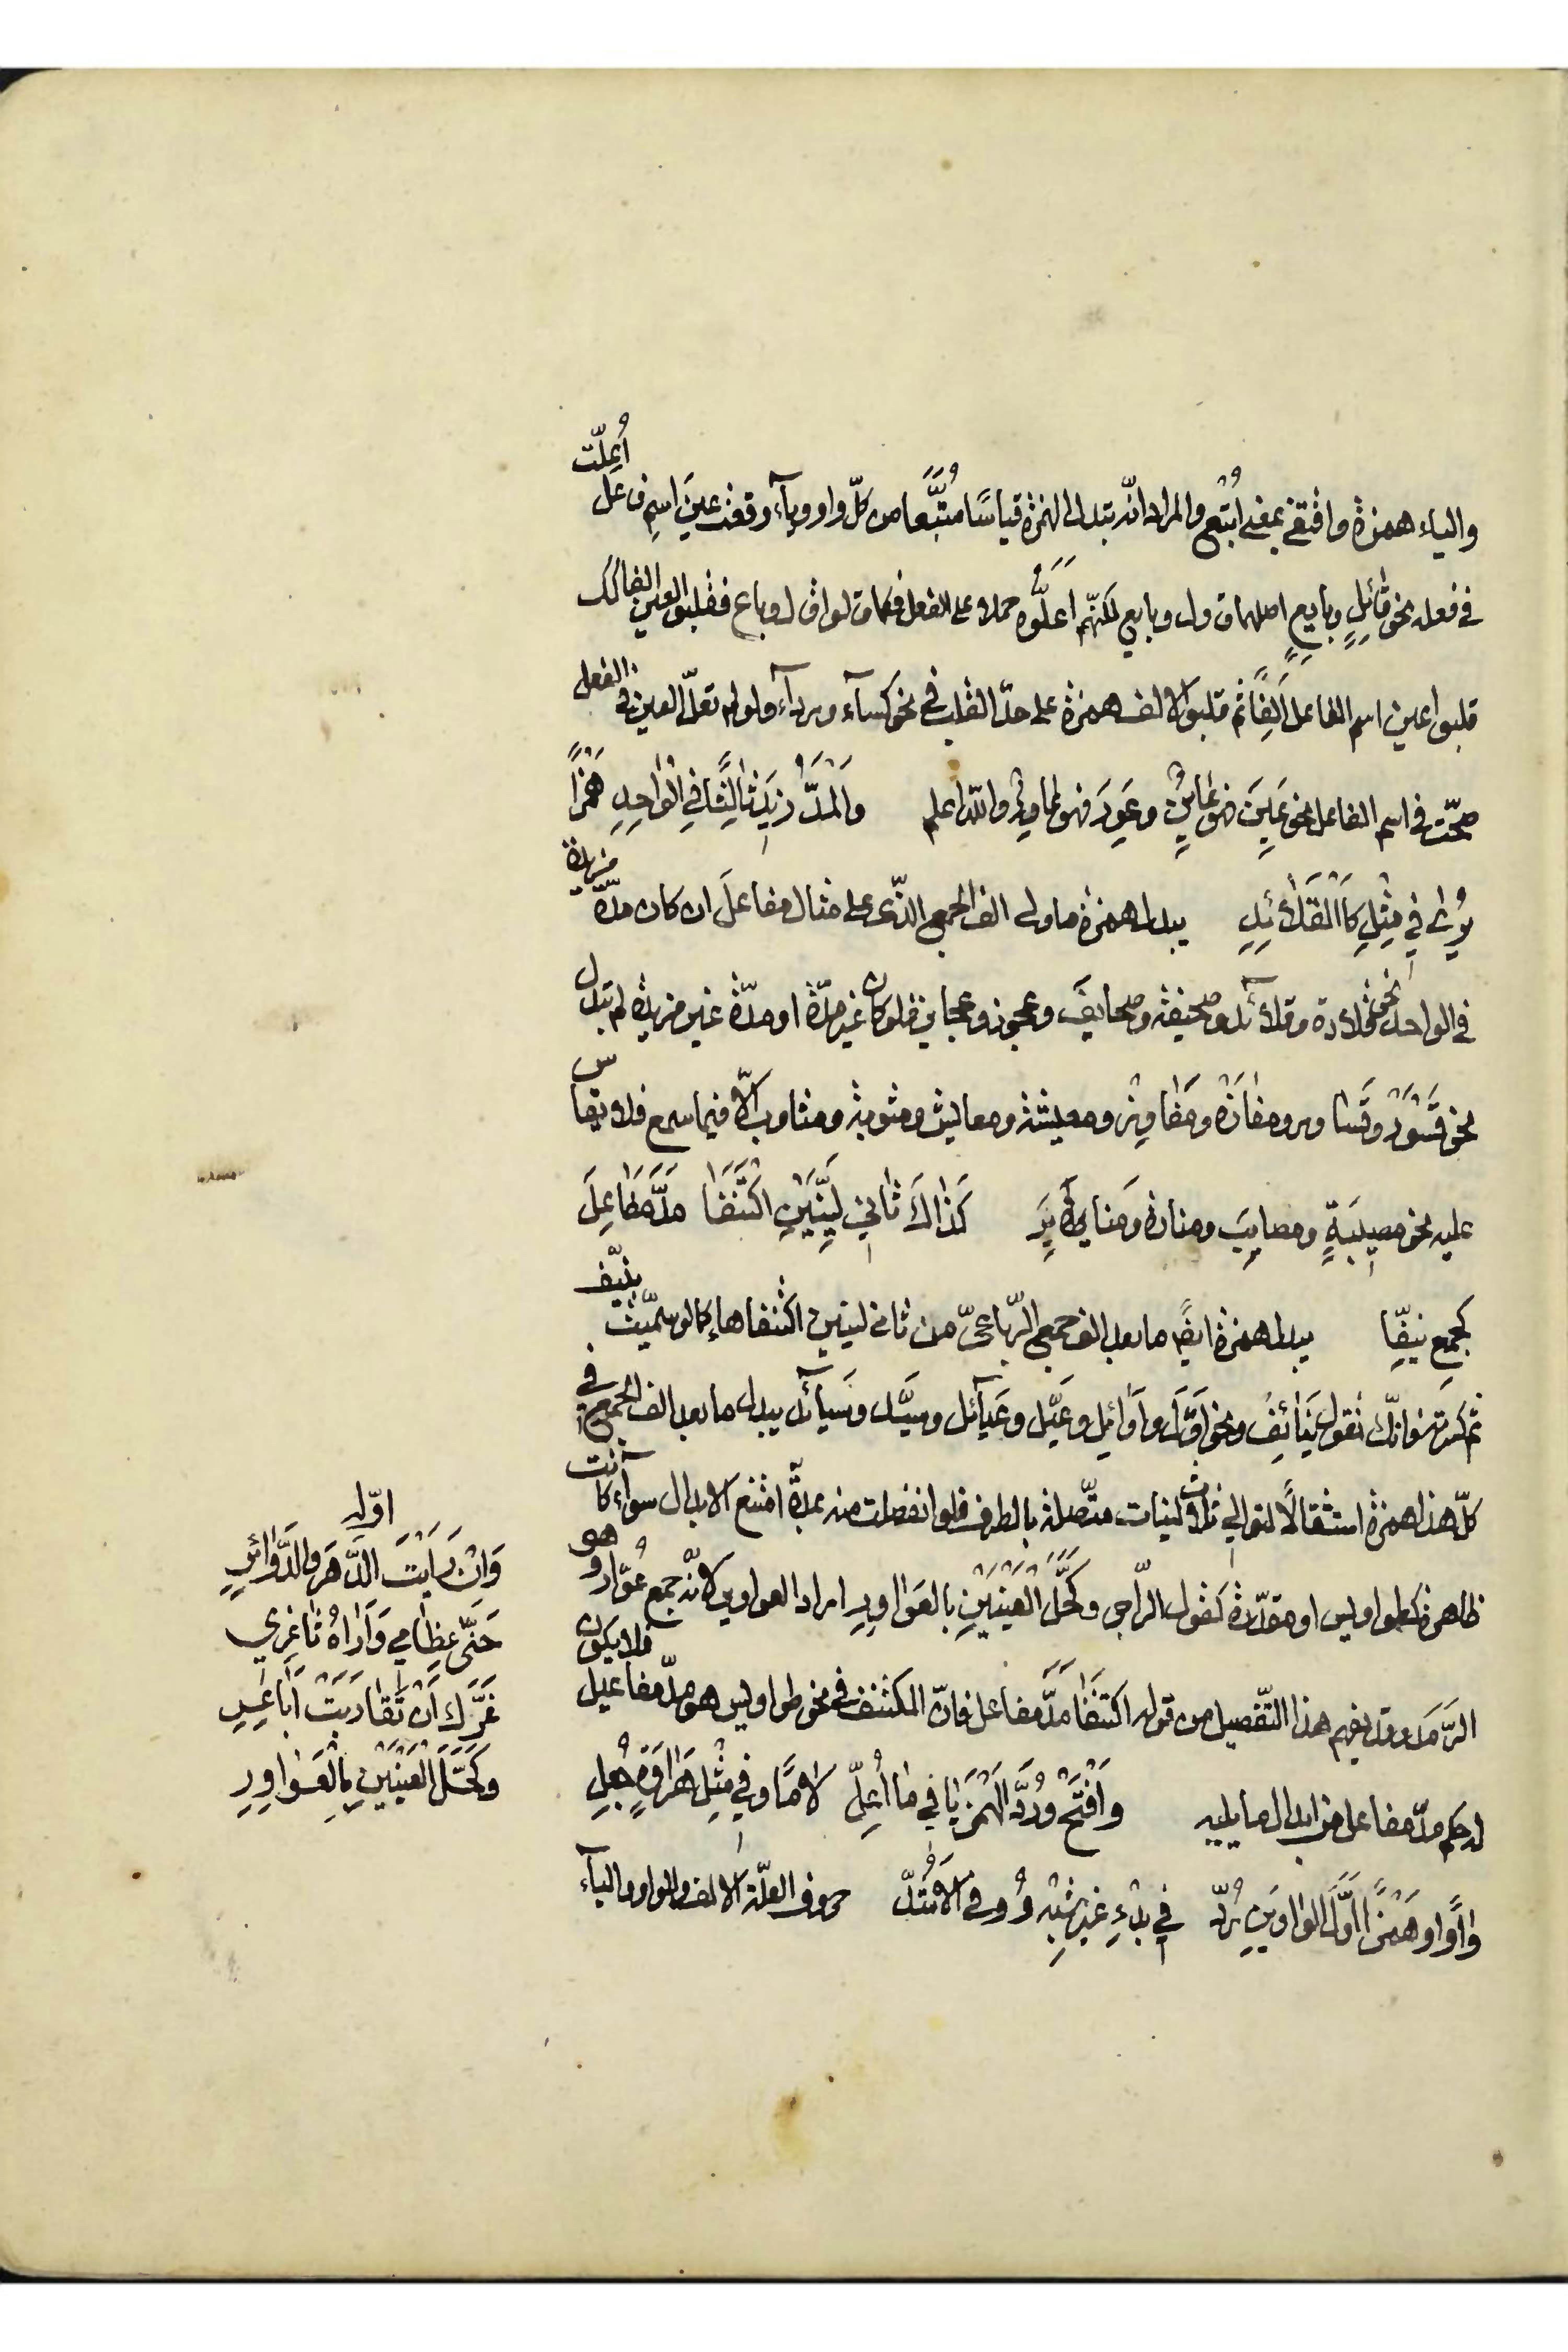 والياء همزة واقتفي بمعنى اُتُّبِع والمراد انّه تبدل الهمزة قياسًا مُتَّبَعًا من كلّ واو وياۤء وقعت عينَ اسمِ فاعل اُعِلّت
في فعله نحو قائلٍ وبايعٍ اصلهما قاول وبايع لكنّهم اَعَلُّوه حملا على الفعل فكما قالوا قال وباع فقلبوا العين الفا كذلك
قلبوا عين اسم الفاعل اَلِفًا ثم قلبوا الالف همزة على حدّ القلب في نحو كساۤء ورداۤء ولو لم تعلّ العين في الفعل
صحّت في اسم الفاعل نحو عَيِنَ فهو عاينٌ وعَوِرَ فهو عاوِرٌ والله اعلم وَالْمَدُّ زِيدَ ثَالِثًا فِي الْوَاحِدِ هَمْزًا
يُرٰى فِي مِثْلِ كَالْقَلَائِدِ يبدل همزة ما ولى الف الجمع الذّى على مثال مفاعلَ ان كان مدّة مزيدة
في الواحد نحو قلادة وقلاۤئد وصحيفة وصحايفَ وعجوز وعجايز فلو كان غير مدّة او مدّة غير مزيدة لم تبدل
نحو قَسْوَرٌ وقَسَاوِر ومفازة ومَفَاوِز ومعيشة ومعايش ومثوبة ومثاوب الّا فيما سمع فلا يقاس
عليه نحو مصيبَةٍ ومصايبَ ومنارة ومنايرَ كَذَاكَ ثَانِي لَيِّنَيْنِ اكْتَنَفَا مَدَّ مَفَاعِلَ
كجمعٍ نيّفا يبدل همزة ايضًا ما بعد الف جمع الرّباعىّ من ثاني لينين اكتنفاها كما لو سمّيت بنيّف
ثم كسّرته فانّك تقول نَيَائِفُ ونحو اَوَّل واَوَائِل وعَيّل وعَيَاۤئل وسيَّد وسَيَاۤئد يبدل ما بعد الف الجمع في
كلّ هذا همزة استثقالًا لتوالي ثلاث لينات متّصلة بالطرف فلو انفصلت منه بمدّة امتنع الابدال سواۤء كانت
ظاهرة كطواويس او مقدّرة كقول الرّاجز وكَحَّلَ الْعَيْنَيْنِ بالعَوَاوِرِ اراد العواوير لانّه جمع عُوّار وهو
الرَّمَد وقد يفهم هذا التّفصيل من قوله اكتَنَفَا مَدَّ مفاعل فانّ المكتنف في نحو طواويس هو مدّ مفاعيل فلا يكون
له حكم مدّ مفاعل من ابدال ما يليه وَافْتَحْ وَرُدَّ الْهَمْزَ يَا فِي مَا اُعِلّ لَامًا وَفِي مِثْلِ هَرَاوَةٍ جُعِل
وَاوًا وَهَمْزًا اَوَّلَ الْوَاوَيْنِ رُدّ فِي بَدْءِ غَيْرِ شِبْهِ وُوفِيَ الْاَشُدّ حروف العلّة الالف والواو والياۤء
اوّله
وَاَنْ رَأَيْتَ الدَّهْرَ وَالدَّوَائِرِ
حَنَّى عِظَامِي وَاَرَاهُ ثَاغِرِي
غَرَّكَ اَنْ تَقَارَبَتْ اَبَاعِرِي
وَكَحَّلَ الْعَيْنَيْنِ بِالْعَوَاوِرِ